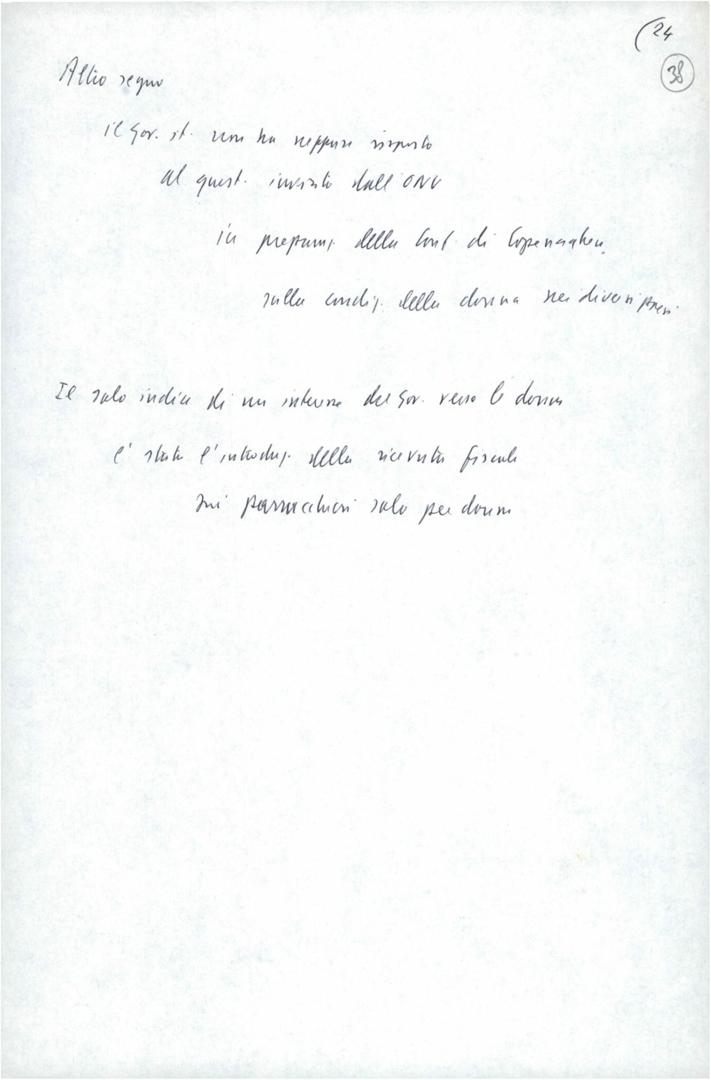 (24
38
Altro segno
il Gov. it. non ha neppure risposto
al quest. inviato dall'ONU
in preparaz. della Conf. di Copenaghen
sulla condiz. della donna nei diversi paesi
Il solo indice di un interesse del Gov. verso le donne
è stata l'introduz. della ricevuta fiscale
sui parrucchieri solo per donne